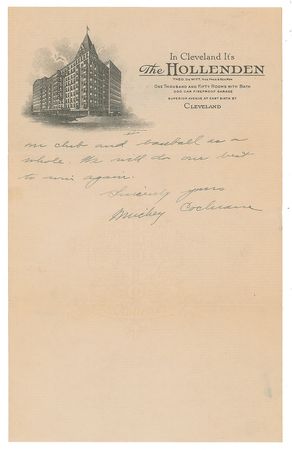 In Cleveland It's
The HOLLENDEN
THEO. DE WITT, Vice Pres & Gen Mgr
ONE THOUSAND AND FIFTY ROOMS WITH BATH
500 CAR FIREPROOF GARAGE
SUPERIOR AVENUE AT EAST SIXTH ST
CLEVELAND
club and baseball as a
whole. We will do our best
to win again.
Sincerely yours
Mickey Cochrane